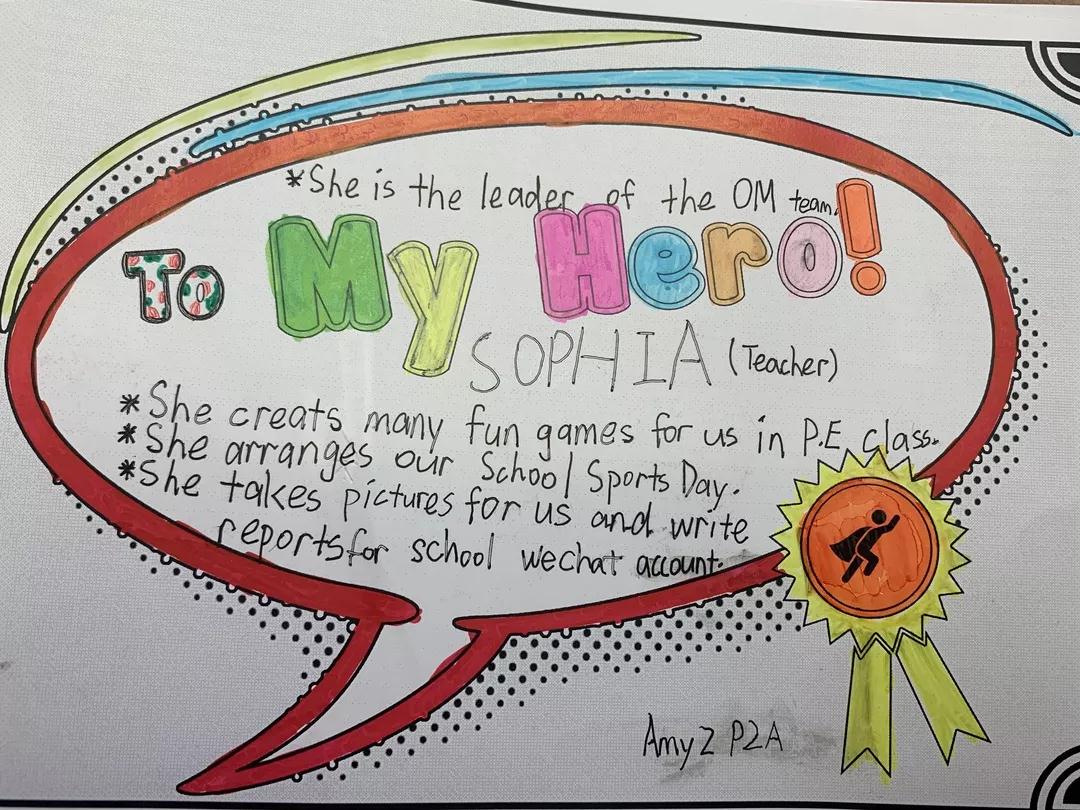 *She is the leader of the OM team.
To My Hero!
SOPHIA (Teacher)
*She creats many fun games for us in P.E class.
*She arranges our School Sports Day.
*She takes pictures for us and write
reports for school wechat account.
Amy Z P2A